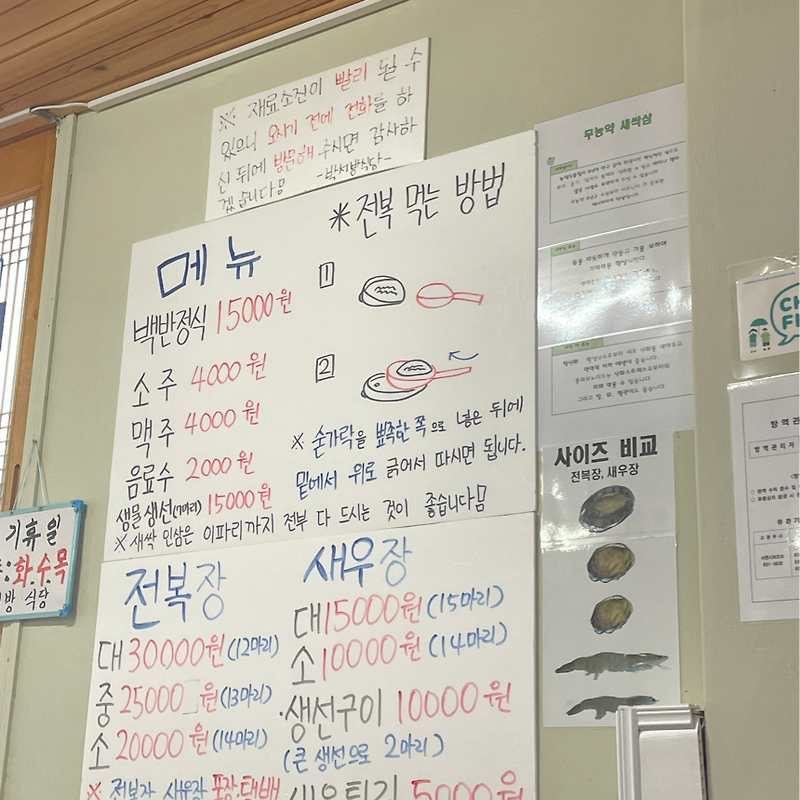 ※ 재료소진이 빨리 될 수
있으니 오시기 전에 전화를 하
신 뒤에 방문해 주시면 감사하
겠습니다
-박서방식당-
메뉴
백반정식 15000원
소주 4000원
맥주 4000원
음료수 2000원
생물생선(1마리) 15000원
※전복 먹는 방법
1
2
※ 숟가락을 뾰족한 쪽으로 넣은 뒤에
밑에서 위로 긁어서 따시면 됩니다.
※ 새싹 인삼은 이파리까지 전부 다 드시는 것이 좋습니다
전복장
대 30000원 (12마리)
중 25000원 (13마리)
소 20000원 (14마리)
※ 전복장 새우장 포장·택배
새우장
대 15000원 (15마리)
소 10000원 (14마리)
·생선구이 10000원
(큰 생선으로 2마리)
새우튀김 5000원
무농약 새싹삼
사이즈 비교
전복장, 새우장
기휴일
화.수.목
방 식당
CH
FI
방역관
방역관리자